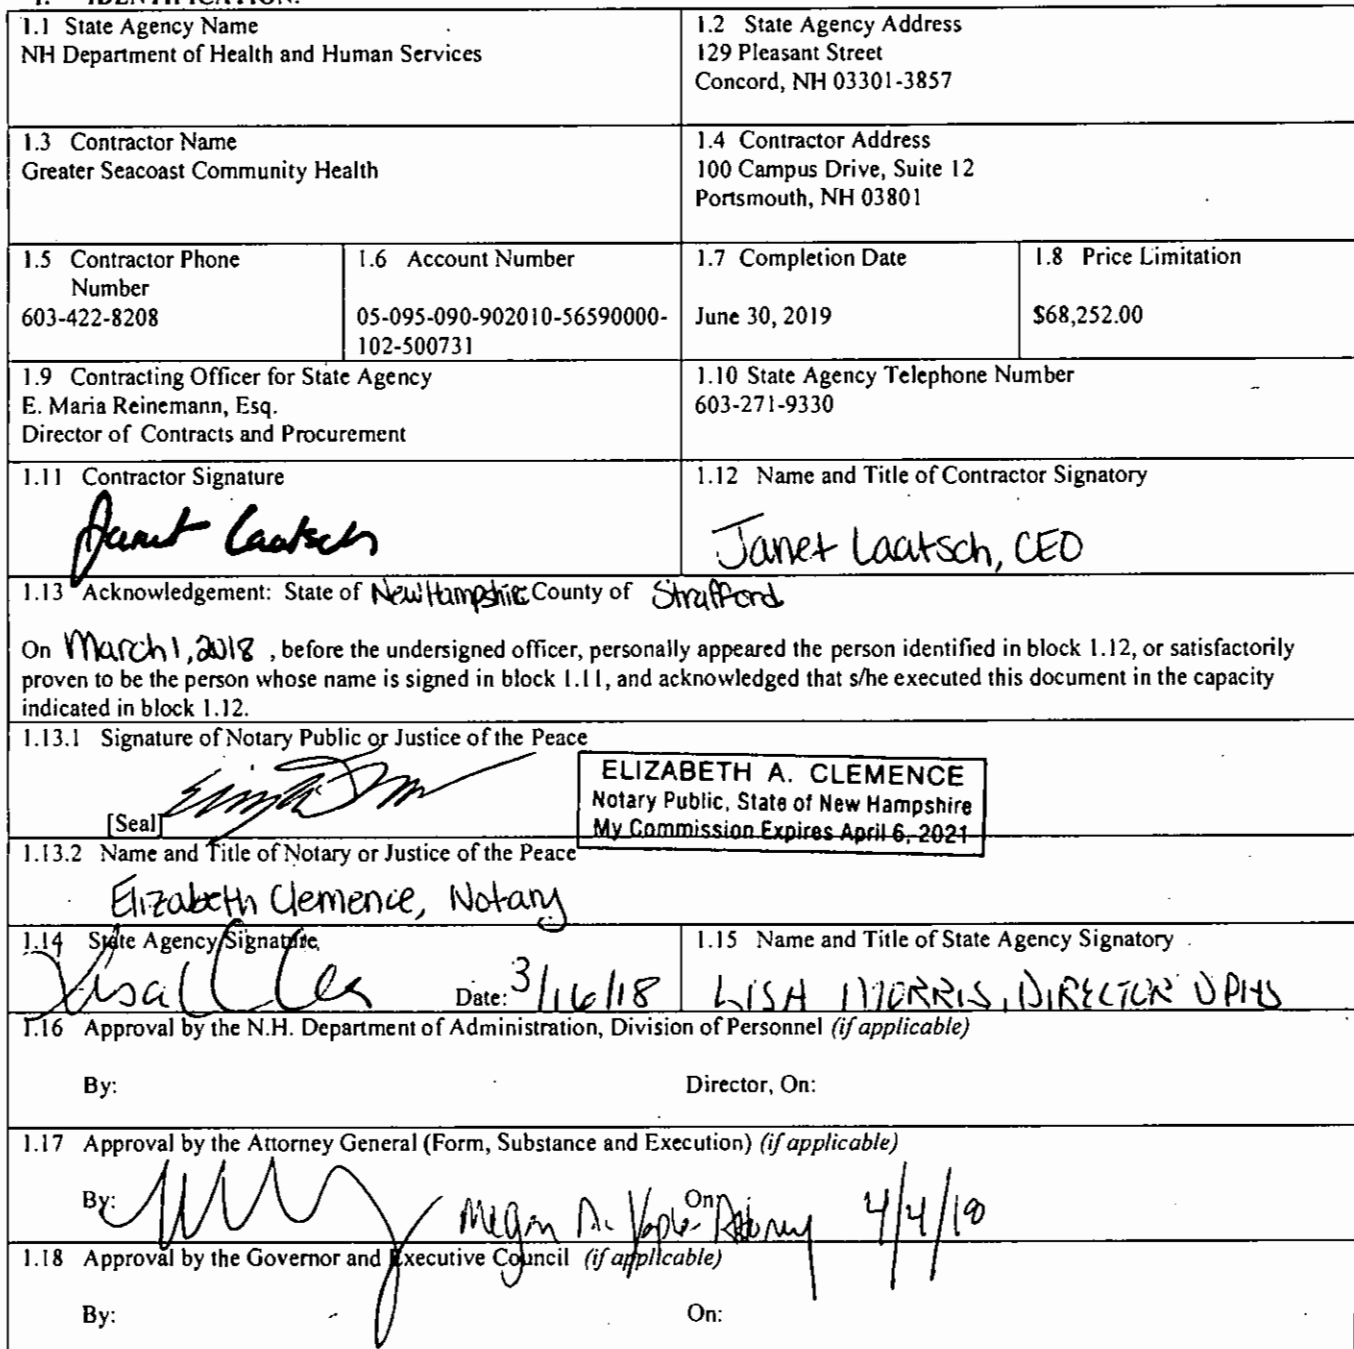 1. IDENTIFICATION.
1.1 State Agency Name
NH Department of Health and Human Services
1.2 State Agency Address
129 Pleasant Street
Concord, NH 03301-3857
1.3 Contractor Name
Greater Seacoast Community Health
1.4 Contractor Address
100 Campus Drive, Suite 12
Portsmouth, NH 03801
1.5 Contractor Phone
Number
603-422-8208
1.6 Account Number
05-095-090-902010-56590000-
102-500731
1.7 Completion Date
June 30, 2019
1.8 Price Limitation
$68,252.00
1.9 Contracting Officer for State Agency
E. Maria Reinemann, Esq.
Director of Contracts and Procurement
1.10 State Agency Telephone Number
603-271-9330
1.11 Contractor Signature
Janet Laatsch
1.12 Name and Title of Contractor Signatory
Janet Laatsch, CEO
1.13 Acknowledgement: State of New Hampshire County of Strafford
On March 1, 2018, before the undersigned officer, personally appeared the person identified in block 1.12, or satisfactorily
proven to be the person whose name is signed in block 1.11, and acknowledged that s/he executed this document in the capacity
indicated in block 1.12.
1.13.1 Signature of Notary Public or Justice of the Peace
[Seal]
ELIZABETH A. CLEMENCE
Notary Public, State of New Hampshire
My Commission Expires April 6, 2021
1.13.2 Name and Title of Notary or Justice of the Peace
Elizabeth Clemence, Notary
1.14 State Agency Signature
Date: 3/16/18
1.15 Name and Title of State Agency Signatory
LISA MORRIS, DIRECTOR DPHS
1.16 Approval by the N.H. Department of Administration, Division of Personnel (if applicable)
By: Director, On:
1.17 Approval by the Attorney General (Form, Substance and Execution) (if applicable)
By: Megan A. On: Attorney 4/4/18
1.18 Approval by the Governor and Executive Council (if applicable)
By: On: